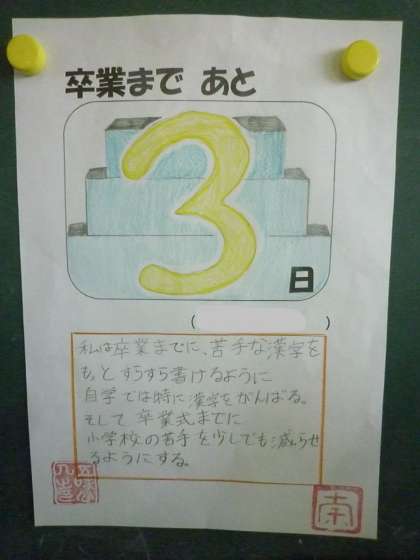 卒業まで あと
3
日
(            )
私は卒業までに、苦手な漢字を
もっとすらすら書けるように
自学では特に漢字をがんばる。
そして 卒業式までに
小学校の苦手を少しでも減らせ
るようにする。